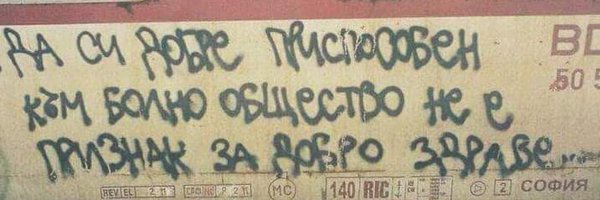 ДА СИ ДОБРЕ ПРИСПОСОБЕН
КЪМ БОЛНО ОБЩЕСТВО НЕ Е
ПРИЗНАК ЗА ДОБРО ЗДРАВЕ...
BD
50 5
REV EL MC 140 RIC 2 СОФИЯ